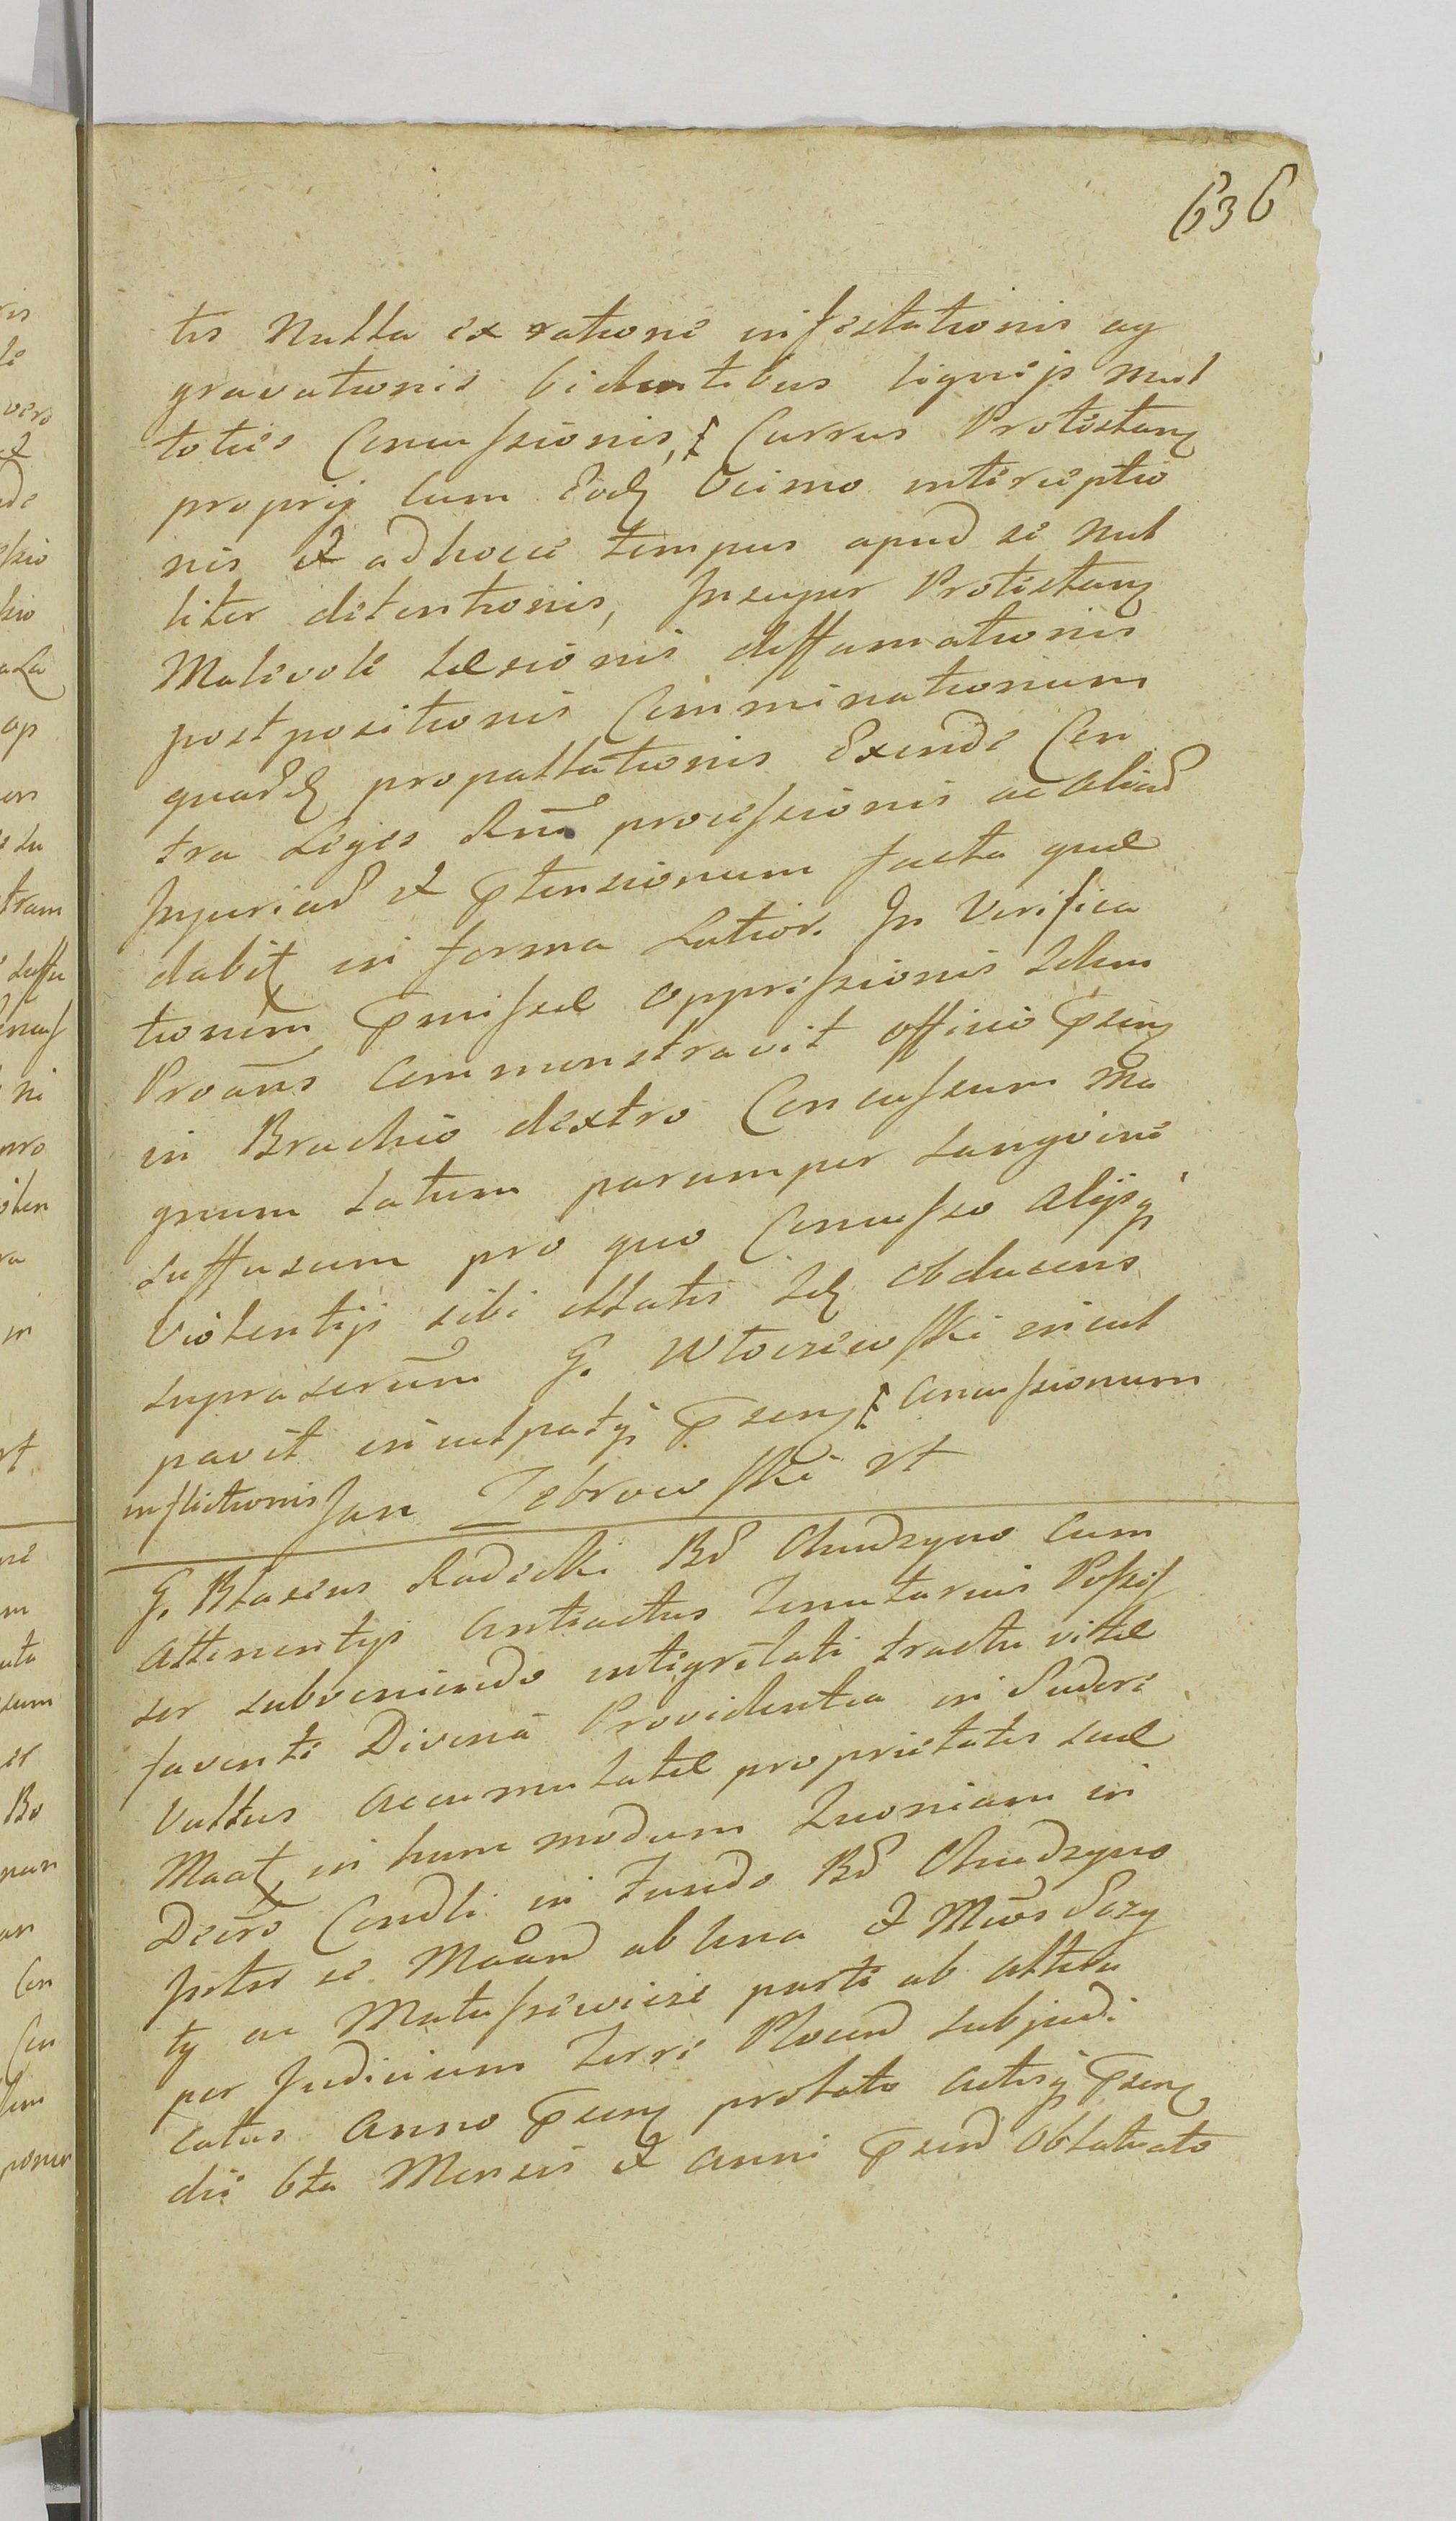 636
tis Nulla ex ratione infestationis ag
gravationis bidentibus ligneis mul
toties Concussionis, & Currus Protestanẽ
proprij cum Eodẽ Ocimo interceptio
nis et adhocce tempus apud se nul
liter detentionis, Insuper Protestanẽ
Malevole Læsionis diffamationis
postpositionis Comminationum
quarũ propallationis Exinde Con
tra Leges Rnũ processionis ac aliarũ
Injuriarũ et ptensionum facta quæ
dabiť in forma Latior. In Verifica
tionem pmissæ oppressionis Idem
Proãns Commonstravit officio psenť
in Brachio dextro Concussum ma
gnum Latum parumper Sangvine
Suffusum pro quo Concusso alijsq
Violentijs sibi illatis Idẽ obducens
suprascrũm G. Włoczewski incul
pavit inculpatq psenť & concussionum
inflictionis Jan Zebrowski vt
G. Blasius Radecki Bõ Chudzyno Cum
attinentijs Contractus Tenutarius Possess
sor subveniendo integritati tractu vitæ
favente Divina Providentia in Sudore
Vultus accumulatæ proprietatis suæ
Maať in hunc modum Quoniam in
Decrõ Condli in Fundo Bõ Chudzyno
Inter se Maanõ ab una et
ty ac Matuszewicze parte ab altera
per Judicium Terre Plocen Subjudi
catus Anno psenť prolato actisq psenť
die 6ta Mensis et anni psenõ oblatato